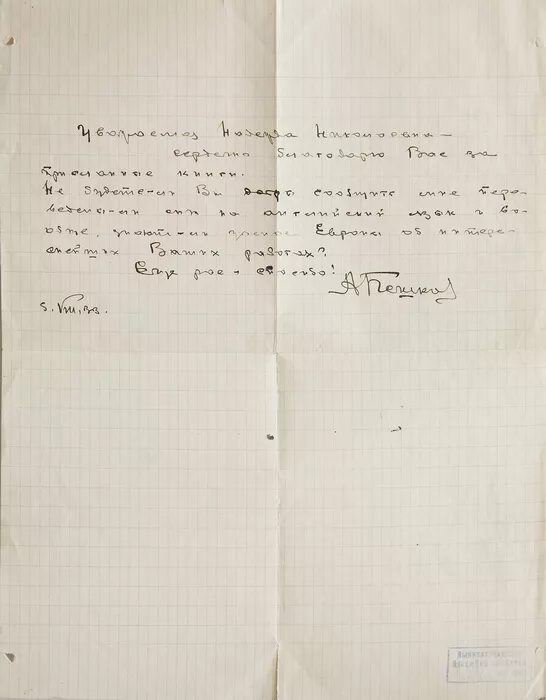 Уважаемая Надежда Николаевна –
сердечно благодарю Вас за
присланные книги.
Не будете-ли Вы добры сообщить мне пере-
ведены-ли они на английский язык и во-
обще, знают-ли ученые Европы об интере-
снейших Ваших работах?
Еще раз – спасибо!
А Пешков
5. VIII, 33.